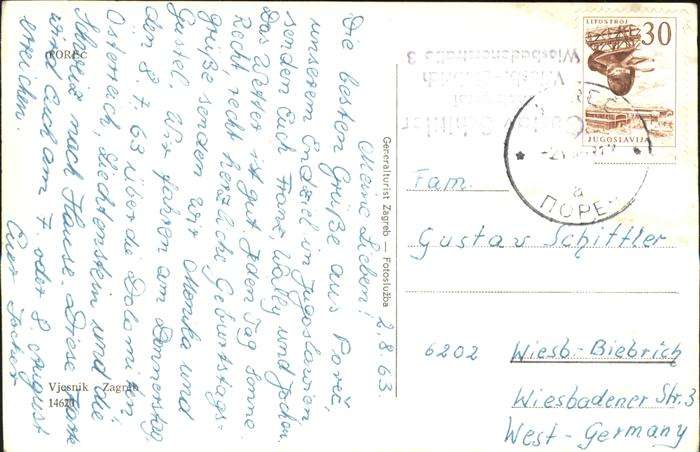 Meine Lieben! 2.8.63.
Die besten Grüße aus Poreč,
unserem Endziel in Jugoslawien
senden Euch Franz, Wally und Jochen.
Das Wetter ist gut. Jeden Tag Sonne.
Recht, recht herzliche Geburtstags-
grüße senden wir Monika und
Gustel. Wir fahren am Donnerstag
den 8.7.63 über die Dolomiten,
Österreich, Liechtenstein und die
Schweiz nach Hause. Diese Karte
wird Euch am 7. oder 8. August
erreichen.
Euer Jochen
POREČ
Vjesnik Zagreb
14620
Generalturist Zagreb — Fotoslužba
LITOSTROJ
30
JUGOSLAVIJA
ПОРЕЧ
a
Gustav Schittler
Wiesb.-Biebrich
Wiesbadenerstraße 3
Fam.
Gustav Schittler
6202 Wiesb.-Biebrich
Wiesbadener Str. 3
West-Germany